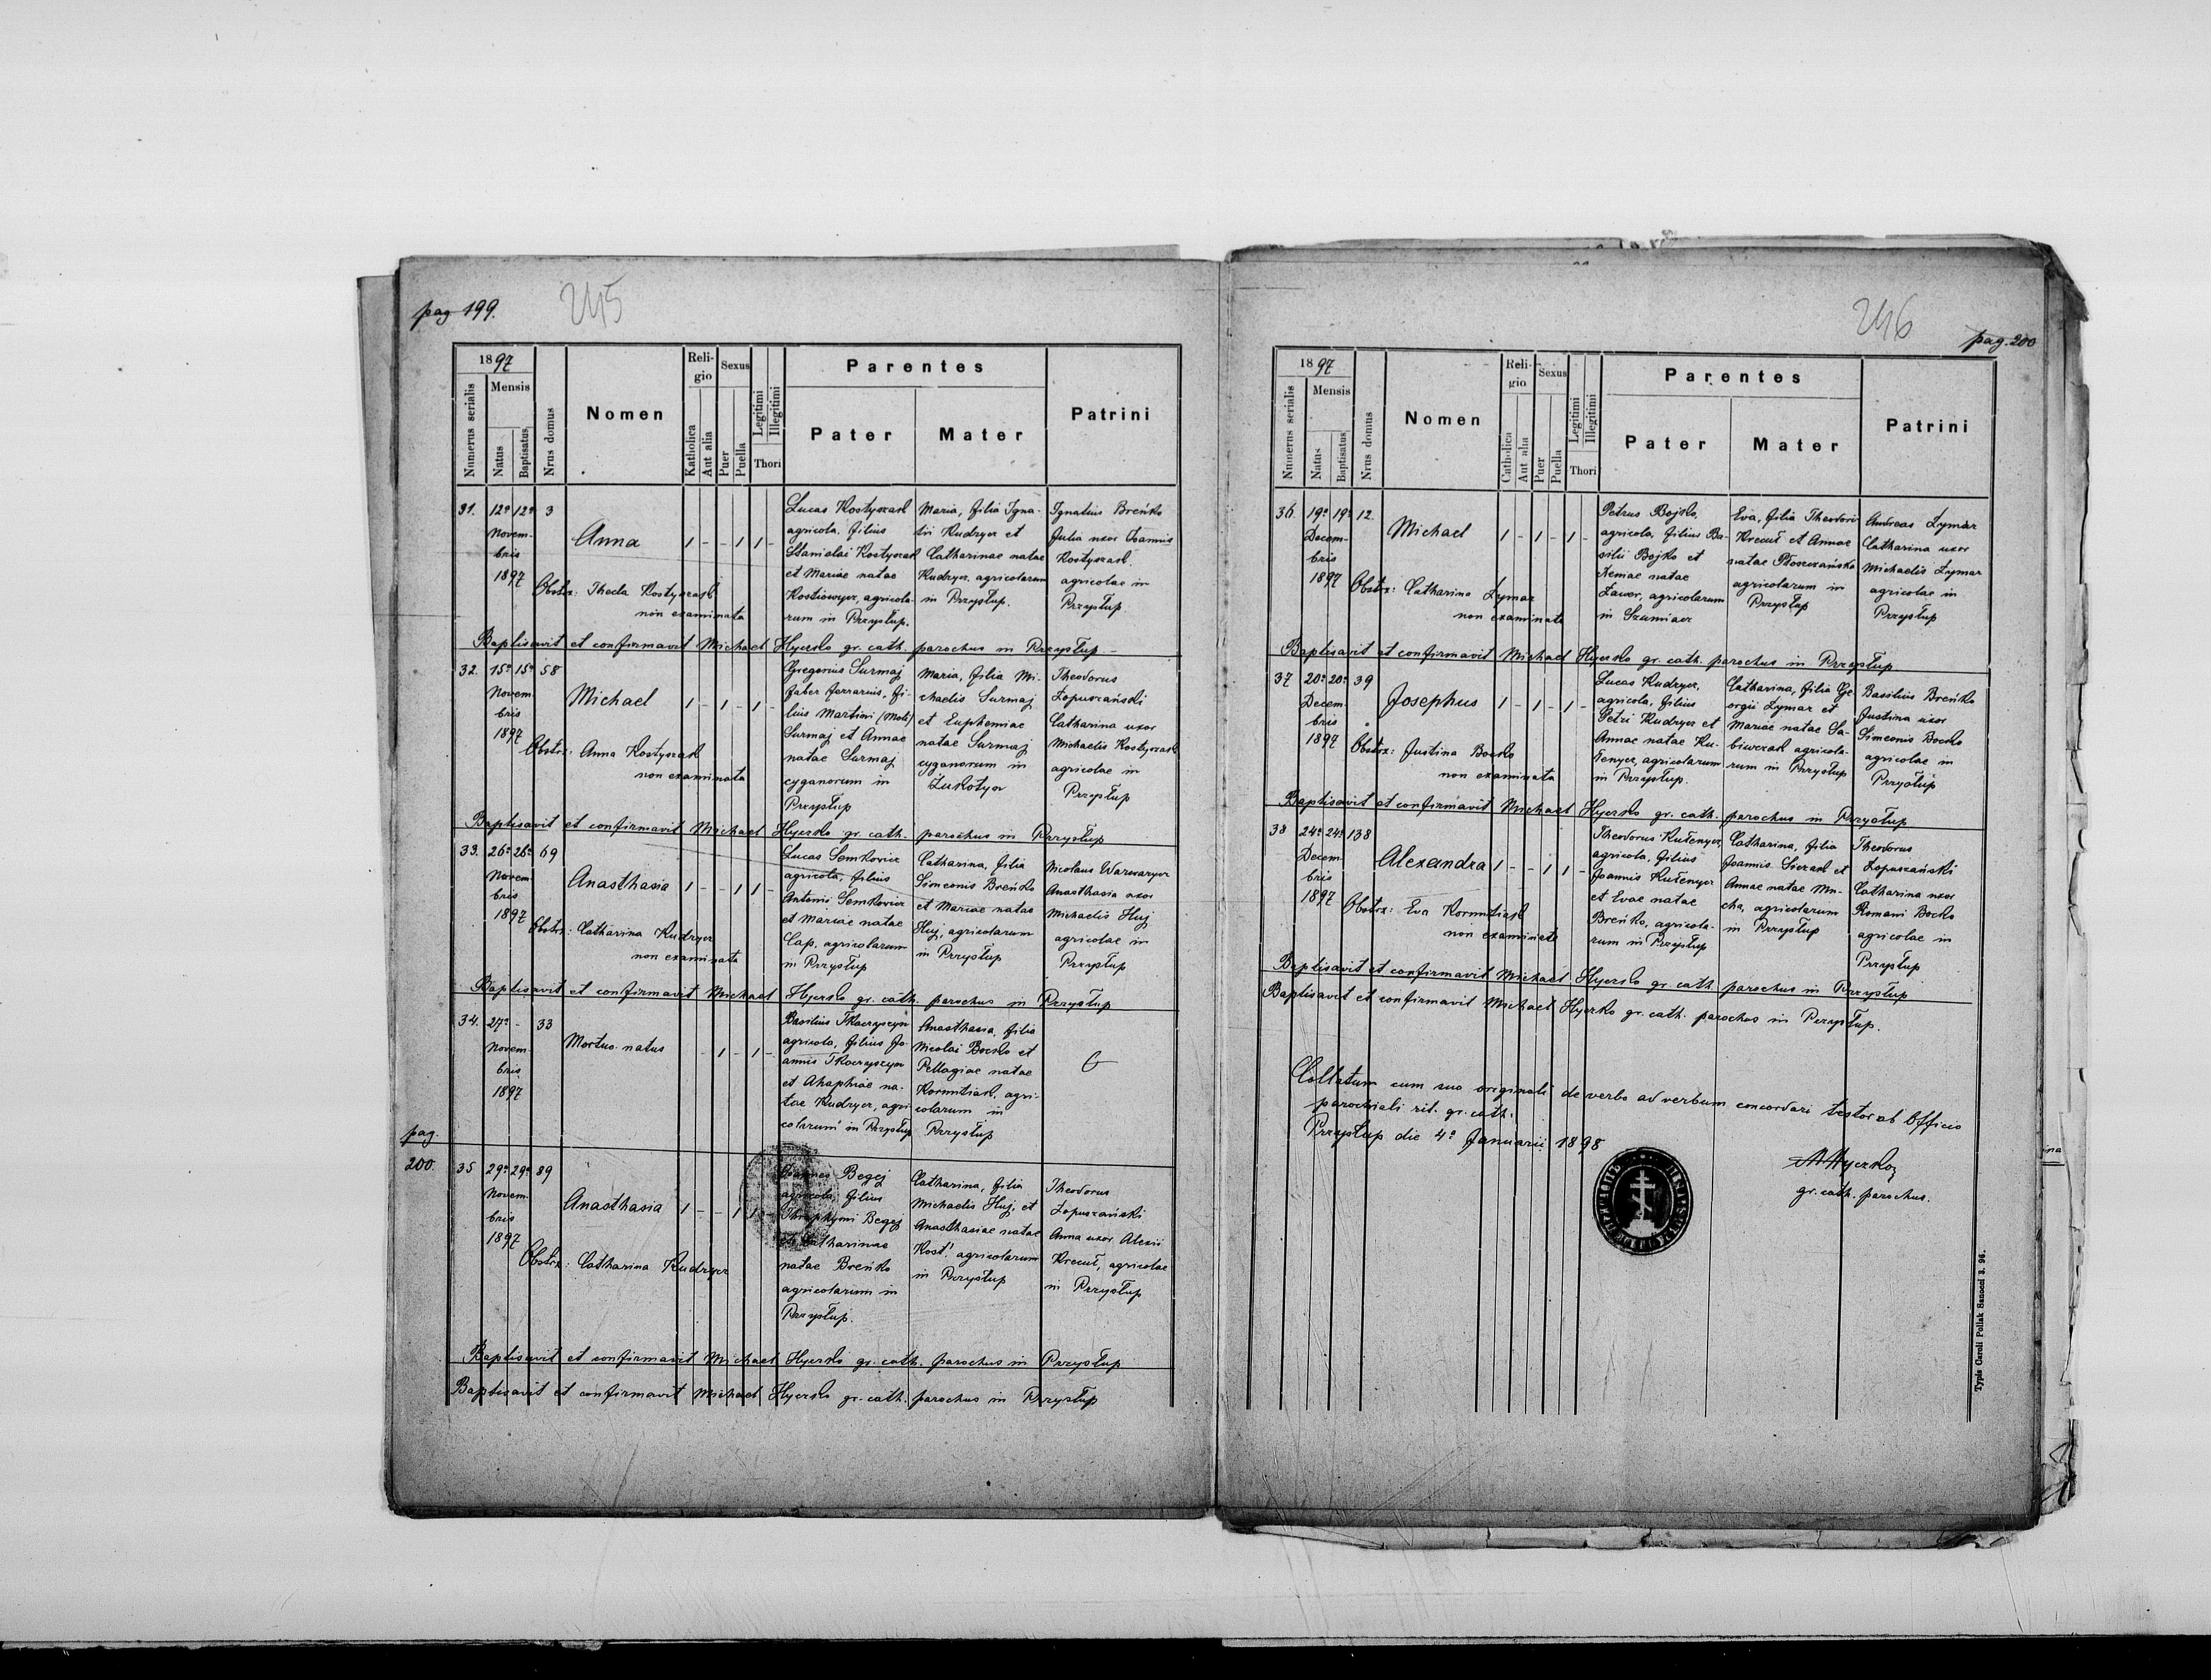 pag 199.
245
1897
Numerus serialis
Mensis
Natus
Baptisatus
Nrus domus
Nomen
Religio
Katholica
Aut alia
Sexus
Puer
Puella
Legitimi
Illegitimi
Thori
Parentes
Pater
Mater
Patrini
31. 12a 12a 3
Novem-
bris
1897
Anna
1 - - 1 1 -
Obstx: Thecla Kostyszak
non examinata
Lucas Kostyszak
agricola, filius
Stanislai Kostyszak
et Mariae natae
agricola-
rum in Przysłup.
Maria, filia Igna-
tii Kudryez et
Catharinae natae
Kudryez agricolarum
in Przysłup.
Ignatius Breńko
Julia uxor Joannis
Kostyszak.
agricolae in
Przysłup.
Baptisavit et confirmavit Michael Hyczko gr. cath. parochus in Przysłup -
32. 15a 15a 58
Novem-
bris
1897
Michael
1 - 1 - 1 -
Obstx: Anna Kostyszak
non examinata
Gregorius Surmaj
faber ferrarius, fi-
lius Martini
Surmaj et Annae
natae Surmaj
cyganorum in
Przysłup
Maria, filia Mi-
chaelis Surmaj
et Euphemiae
natae Surmaj
cyganorum in
Żukotyn
Theodorus
Łopuszański
Catharina uxor
Michaelis Kostyszak
agricolae in
Przysłup
Baptisavit et confirmavit Michael Hyczko gr. cath. parochus in Przysłup
33. 26a 26a 69
Novem-
bris
1897
Anasthasia
1 - - 1 1 -
Obstx: Catharina Kudryez
non examinata
Lucas Semkovicz
agricola, filius
Antonii Semkovicz
et Mariae natae
Cap, agricolarum
in Przysłup
Catharina, filia
Simeonis Breńko
et Mariae natae
Huj, agricolarum
in Przysłup
Nicolaus Warwaryez
Anasthasia uxor
Michaelis Huj
agricolae in
Przysłup
Baptisavit et confirmavit Michael Hyczko gr. cath. parochus in Przysłup
34. 27a - 33
Novem-
bris
1897
Mortuo natus
- 1 - 1 -
Basilius Tkaczyszyn
agricola, filius Jo-
annis Tkaczyszyn
et Ahaphiae na-
tae Kudryez, agri-
colarum in Przysłup
Anasthasia, filia
Nicolai Bocko et
Pellagiae natae
Kornutiak, agri-
colarum in
Przysłup
pag.
200.
35 29a 29a 89
Novem-
bris
1897
Anasthasia
1 - - 1 1 -
Obstx: Catharina Kudryez
Joannes Begej
agricola, filius
Begej
et Catharinae
natae Breńko
agricolarum in
Przysłup.
Catharina, filia
Michaelis Huj, et
Anasthasiae natae
Kost' agricolarum
in Przysłup
Theodorus
Łopuszański
Anna uxor Alexii
Krecuł, agricolae
in Przysłup
Baptisavit et confirmavit Michael Hyczko gr. cath. parochus in Przysłup
Baptisavit et confirmavit Michael Hyczko gr. cath. parochus in Przysłup
246
pag. 200
1897
Numerus serialis
Mensis
Natus
Baptisatus
Nrus domus
Nomen
Religio
Catholica
Aut alia
Sexus
Puer
Puella
Legitimi
Illegitimi
Thori
Parentes
Pater
Mater
Patrini
36. 19a 19a 12.
Decem-
bris
1897
Michael
1 - 1 - 1 -
Obstx: Catharina Łymar
non examinata
Petrus Bojko,
agricola, filius Ba-
silii Bojko et
Xeniae natae
Ławor, agricolarum
in Szumiacz
Eva, filia Theodori
Krecuł et Annae
natae Płoszczańska
agricolarum in
Przysłup
Andreas Łymar
Catharina uxor
Michaelis Łymar
agricolae in
Przysłup
Baptisavit et confirmavit Michael Hyczko gr. cath. parochus in Przysłup
37 20a 20a 39
Decem-
bris
1897
Josephus
1 - 1 - 1 -
Obstx: Justina Bocko
non examinata
Lucas Kudryez,
agricola, filius
Petri Kudryez et
Annae natae Ku-
łenyez, agricolarum
in Przysłup.
Catharina, filia Ge-
orgii Łymar et
Mariae natae Sa-
biwczak agricola-
rum in Przysłup
Basilius Breńko
Justina uxor
Simeonis Bocko
agricolae in
Przysłup
Baptisavit et confirmavit Michael Hyczko gr. cath. parochus in Przysłup
38 24a 24a 138
Decem-
bris
1897
Alexandra
1 - - 1 1 -
Obstx: Eva Kornutiak
non examinata
Theodorus Kułenyez,
agricola, filius
Joannis Kułenyez
et Evae natae
Breńko, agricola-
rum in Przysłup
Catharina, filia
Joannis Siczak et
Annae natae Mu-
cha, agricolarum
in Przysłup
Theodorus
Łopuszański
Catharina uxor
Romani Bocko
agricolae in
Przysłup
Baptisavit et confirmavit Michael Hyczko gr. cath. parochus in Przysłup
Baptisavit et confirmavit Michael Hyczko gr. cath. parochus in Przysłup.
Collatum cum suo originali de verbo ad verbum concordari testor ab Officio
parochiali rit. gr. cath.
Przysłup die 4a Januarii 1898
MHyczko
gr. cath. parochus.
Typis Caroli Pollak Sanoci 3. 96.